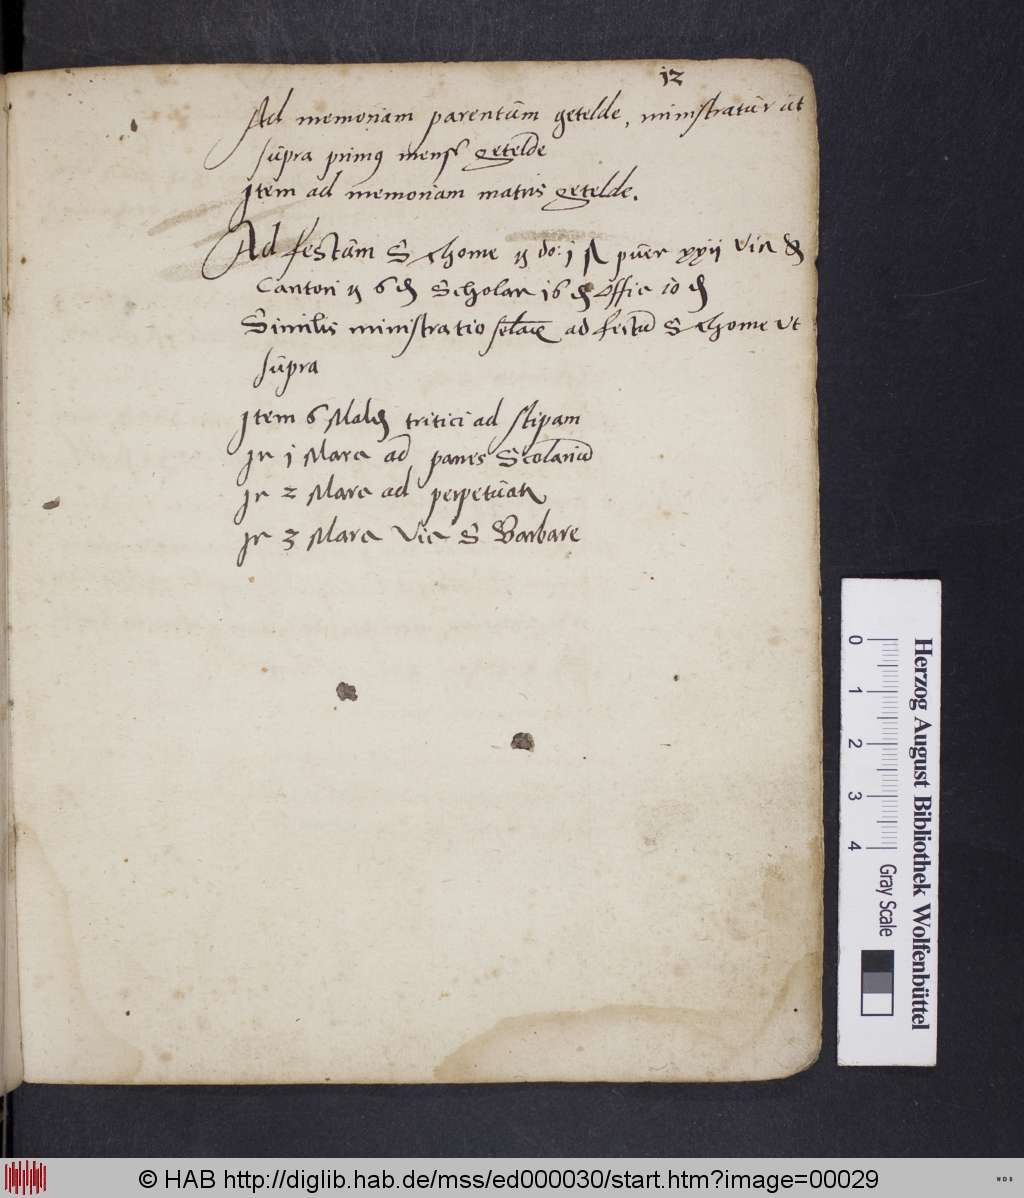 12
Ad memoriam parentum getelde, ministratur ut
supra primus mens getelde
Item ad memoriam matris getelde.
Ad festum S Thome do: 1 puer xxij Vic
Cantori 6 Scholar 16 Offic 10
Similis ministratio ad festum S Thome ut
supra
Item 6 Mald tritici ad stipam
It 1 Marc ad panes Scolarium
It 2 Marc ad perpetuat
It 3 Marc Vic S Barbare
Herzog August Bibliothek Wolfenbüttel
0 1 2 3 4
Gray Scale
© HAB http://diglib.hab.de/mss/ed000030/start.htm?image=00029